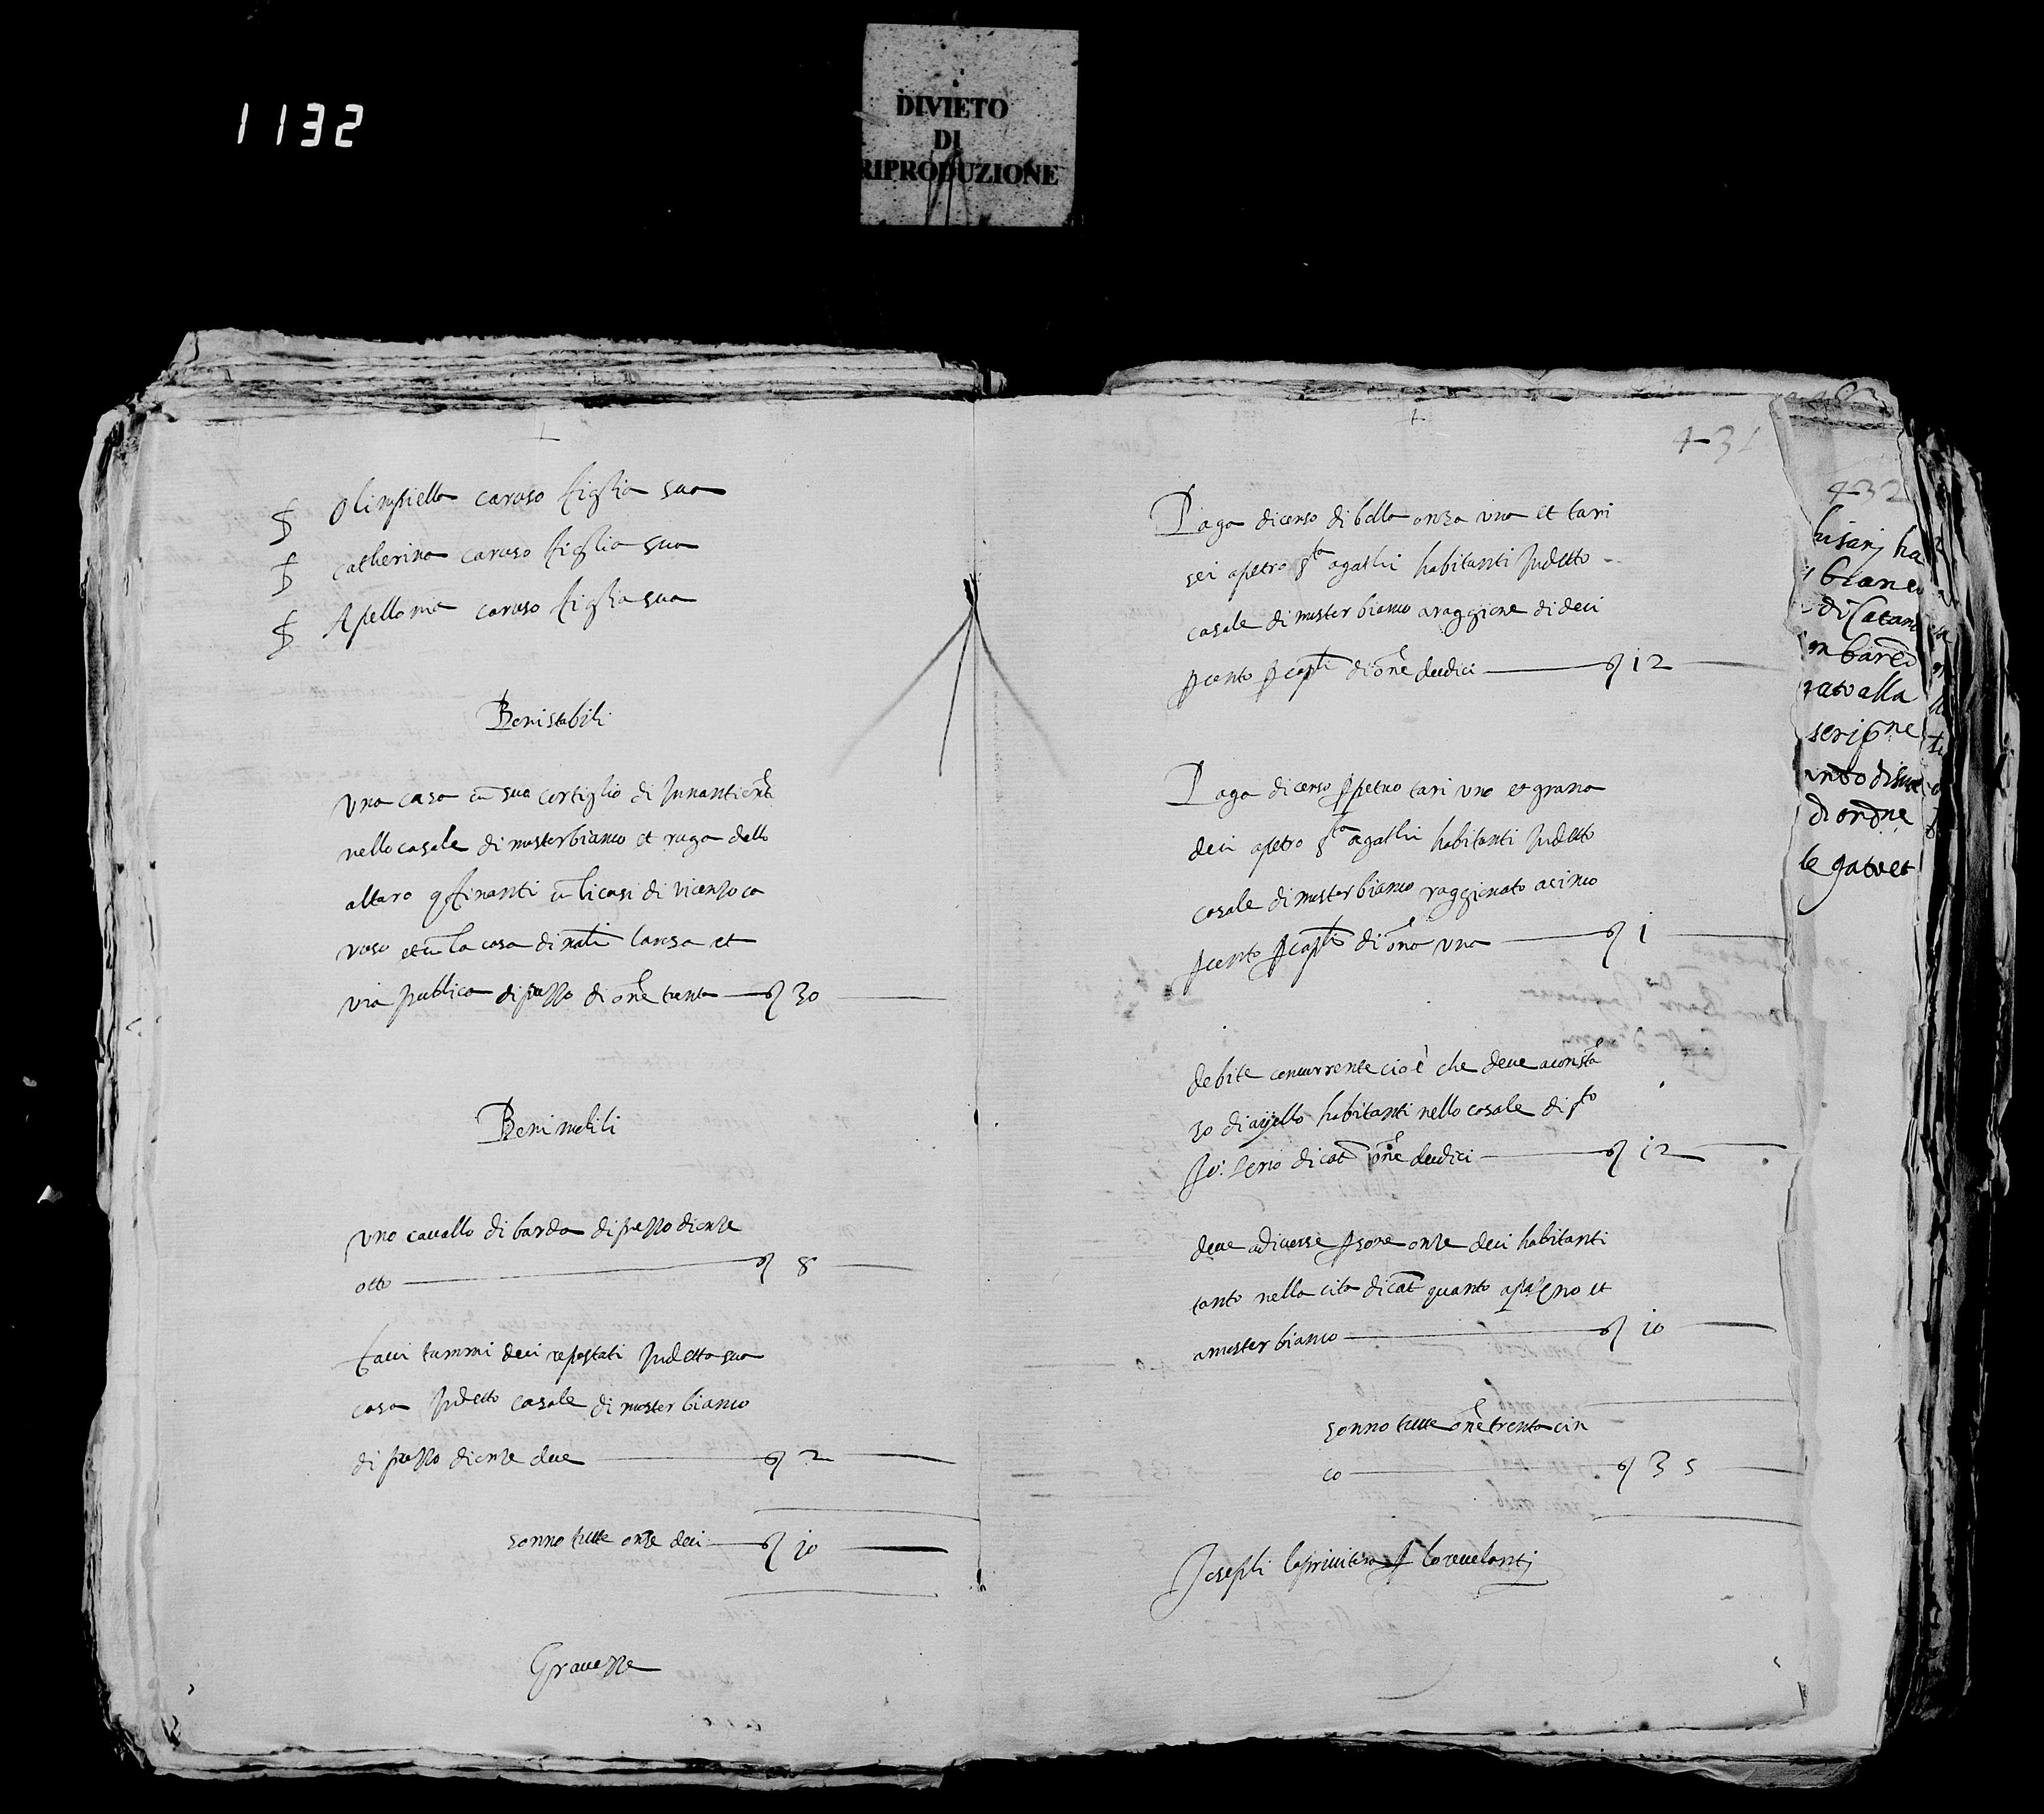 1132
DIVIETO
DI
RIPRODUZIONE
Olimpiella caruso figlia sua
Catherina caruso figlia sua
Apellonia caruso figlia sua
Beni stabili
Una casa cū sua cortiglio di Innanti
nello casale di misterbianco et ruga dello
altaro finanti cū li casi di vicenzo ca
ruso et cū la casa di natli larosa et
via publica di prezzo di onze trenta 30
Beni mobili
Uno cavallo di barda di prezzo di onze
otto 8
favi tummi deci repostati In detta sua
casa In detto casale di mister bianco
di prezzo di onze due 2
sonno tutte onze deci 10
Gravezze
431
Paga di censo di bolla onza una et tari
sei a petro sta agathi habitanti In detto
casale di mister bianco a raggione di deci
per cento per capli di onze dudici 12
Paga di censo perpetuo tari uno et grana
deci a petro sta agathi habitanti In detto
casale di mister bianco raggionato a cinco
per cento per capli di onza una 1
debite concurrente cioè che deve a consta
zo di ayello habitanti nello casale di sto
Jo: di cat onze dudici 12
deve a diverse persone onze deci habitanti
tanto nella cita di cat quanto a et
a mister bianco 10
sonno tutte onze trenta cin
co 35
Joseph laprivitera per lo revelanti
432
bianco
di Catan
rato alla
di ordne